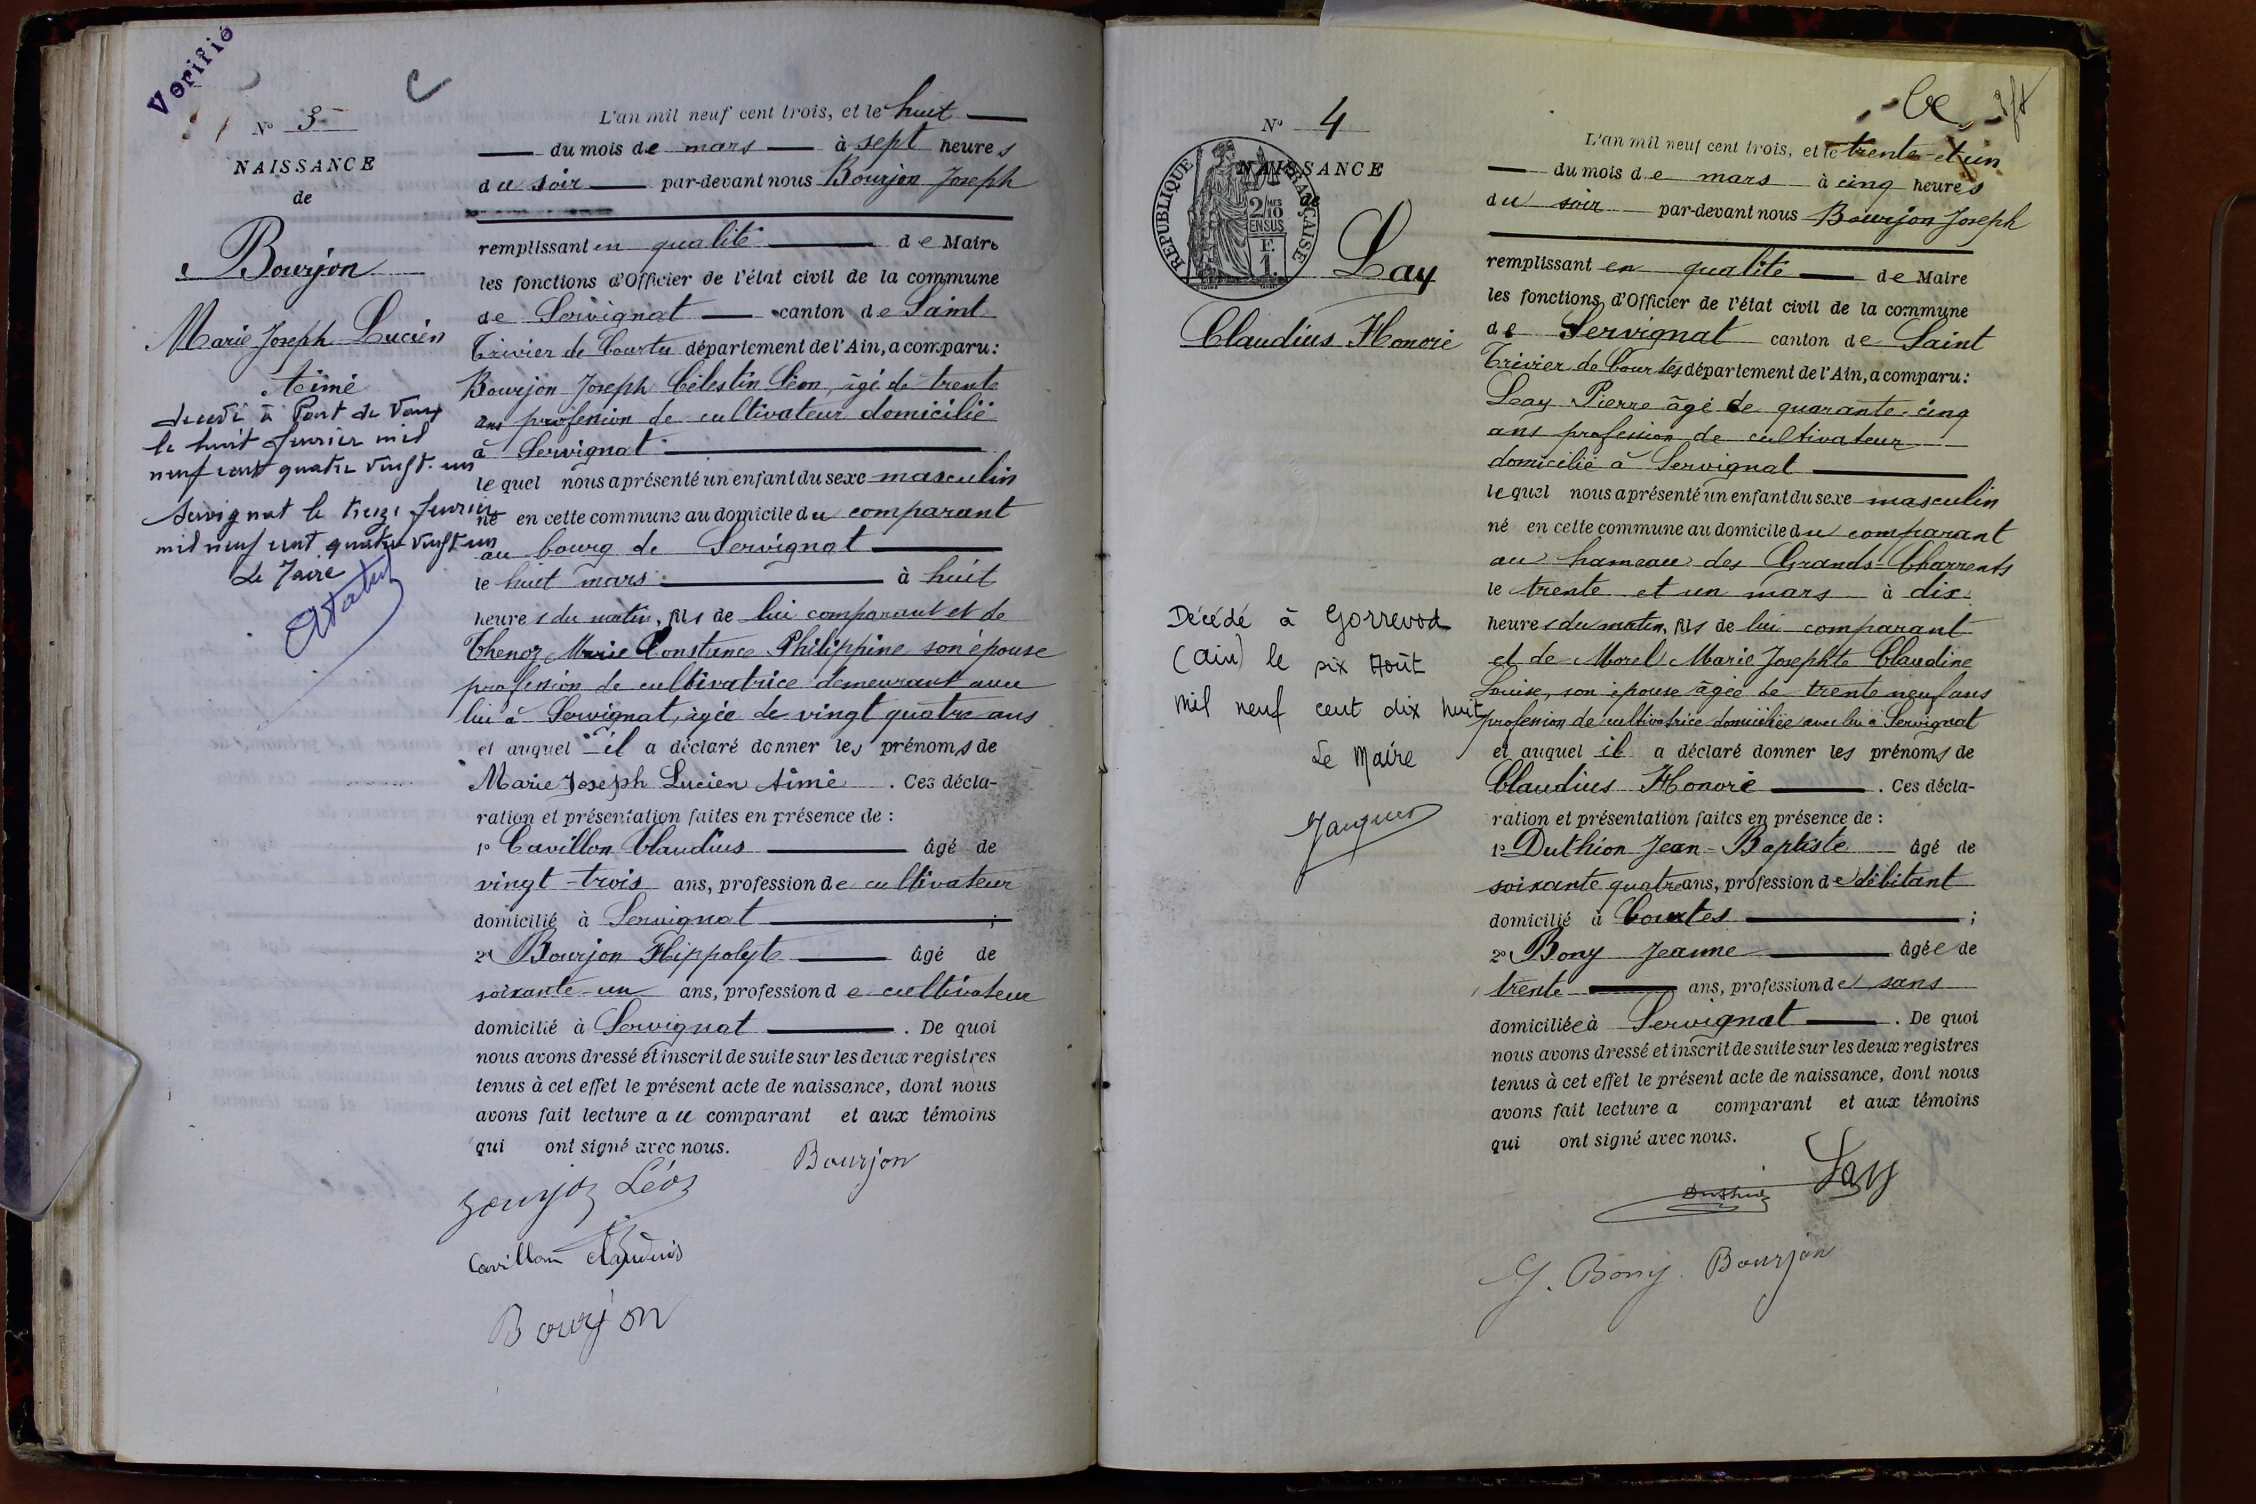 Vérifié
C
N° 3
NAISSANCE
de
Bourjon
Marie Joseph Lucien
Aimé
décédé à Pont de Vaux
le huit février mil
neuf cent quatre vingt-un
Servignat le treize février
mil neuf cent quatre vingt un
Le Maire
L'an mil neuf cent trois, et le huit
du mois de mars à sept heures
du soir par-devant nous Bourjon Joseph
remplissant en qualité de Maire
les fonctions d'Officier de l'état civil de la commune
de Servignat canton de Saint
Trivier de Courtes département de l'Ain, a comparu :
Bourjon Joseph Célestin Léon, âgé de trente
ans profession de cultivateur domicilié
à Servignat
lequel nous a présenté un enfant du sexe masculin
né en cette commune au domicile du comparant
au bourg de Servignat
le huit mars à huit
heures du matin, fils de lui comparant et de
Thenoz Marie Constance Philippine son épouse
profession de cultivatrice demeurant avec
lui à Servignat, âgée de vingt quatre ans
et auquel il a déclaré donner les prénoms de
Marie Joseph Lucien Aimé . Ces décla-
ration et présentation faites en présence de :
1° Cavillon Claudius âgé de
vingt-trois ans, profession de cultivateur
domicilié à Servignat ;
2° Bourjon Hippolyte âgé de
soixante-un ans, profession de cultivateur
domicilié à Servignat . De quoi
nous avons dressé et inscrit de suite sur les deux registres
tenus à cet effet le présent acte de naissance, dont nous
avons fait lecture au comparant et aux témoins
qui ont signé avec nous.
Bourjon
Bourjon Léon
Cavillon Claudius
Bourjon
N° 4
NAISSANCE
de
RÉPUBLIQUE FRANÇAISE
2/10 MES
EN SUS
F.
1.
Lay
Claudius Honoré
Décédé à Gorrevod
(Ain) le six Août
mil neuf cent dix huit
Le Maire
Jacques
L'an mil neuf cent trois, et le trente-et un
du mois de mars à cinq heures
du soir par-devant nous Bourjon Joseph
remplissant en qualité de Maire
les fonctions d'Officier de l'état civil de la commune
de Servignat canton de Saint
Trivier de Courtes département de l'Ain, a comparu :
Lay Pierre âgé de quarante-cinq
ans profession de cultivateur
domicilié à Servignat
lequel nous a présenté un enfant du sexe masculin
né en cette commune au domicile du comparant
au hameau des Grands-Charrents
le trente et un mars à dix
heures du matin, fils de lui comparant
et de Morel Marie Josephte Claudine
Louise, son épouse âgée de trente neuf ans
profession de cultivatrice domiciliée avec lui à Servignat
et auquel il a déclaré donner les prénoms de
Claudius Honoré . Ces décla-
ration et présentation faites en présence de :
1° Duthion Jean-Baptiste âgé de
soixante quatre ans, profession de débitant
domicilié à Courtes ;
2° Bony Jeanne âgée de
trente ans, profession de sans
domiciliée à Servignat . De quoi
nous avons dressé et inscrit de suite sur les deux registres
tenus à cet effet le présent acte de naissance, dont nous
avons fait lecture a comparant et aux témoins
qui ont signé avec nous.
Lay
Duthion
J. Bony. Bourjon